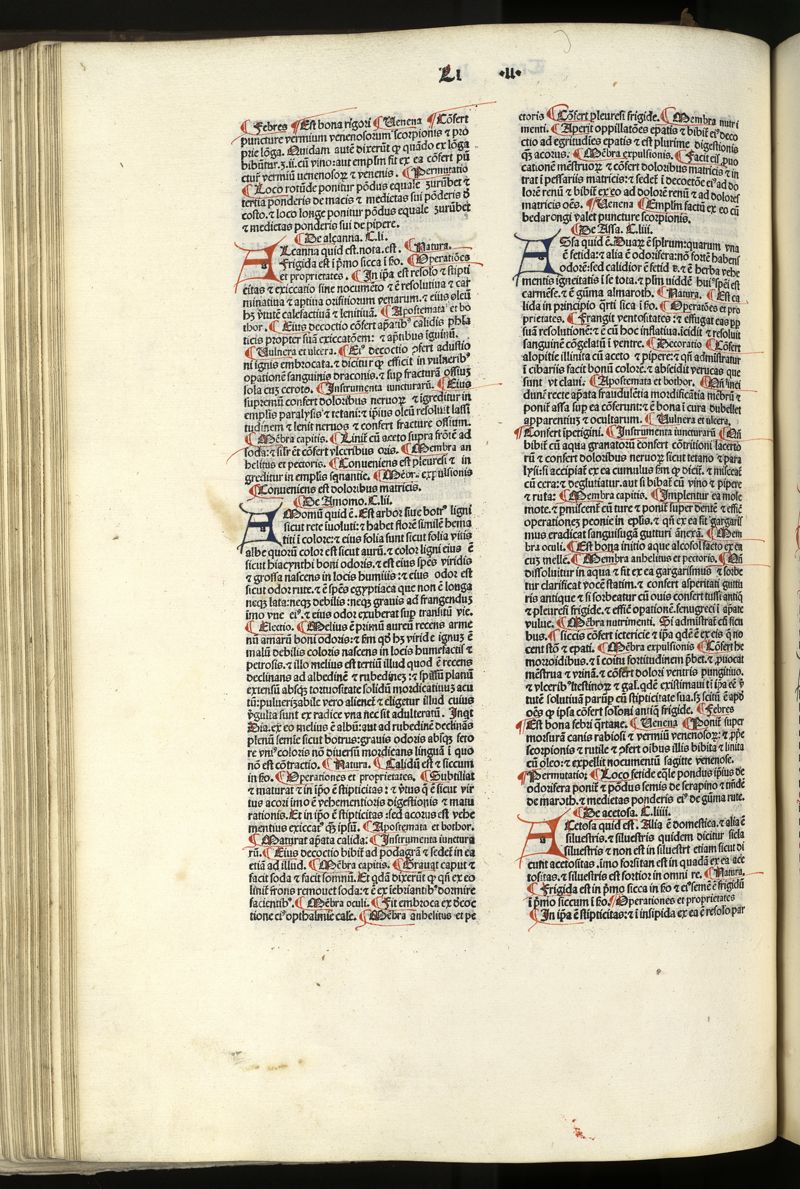 Li .II.
¶ Febres ¶ Est bona rigori ¶ Venena ¶ Cōfert
puncture vermium venenosorum scorpionis & pro
prie lōga. Quidam autē dixerūt ꝙ quādo ex lōga
bibūtur.ʒ.ii.cū vino:aut emplm fit ex ea cōfert pū
¶ Permutatio
¶ Loco rotūde ponitur pōdus equale zurūbet &
tertia ponderis de macis & medietas sui pōderis đ
costo.& loco longe ponitur pōdus equale zurūbet
& medietas ponderis sui de pipere.
¶ De alcanna. C.li.
ALcanna quid est.nota.est. ¶ Natura.
frigida est ī p̄mo sicca ī scđo. ¶ Operatiōes
et proprietates. ¶ In ipa est resolo & stipti
citas & exiccatio sine nocumēto & ē resolutiua & car
minatiua & aptiua orifitiorum venarum.& eius oleū
hꝫ v̄tutē calefactiuā & lenitiuā. ¶ Apostemata et bo
thor. ¶ Eius decoctio cōfert
ticis propter suā exiccatōem:
¶ Vulnera et ulcera. ¶ Eiꝰ decoctio ꝯfert adustio
ni ignis embrocata.& dicitur ꝙ efficit in vulneribꝰ
opationē sanguinis draconis.& sup fracturā ossiuꝫ
sola cuꝫ ceroto. ¶ Instrumenta iuncturarū. ¶ Eius
supremū confert doloribus neruoꝝ & īgreditur in
emplis paralysis & tetani:& ipius oleū resoluit lassi
tudinem & lenit neruos & confert fracture ossium.
¶ Mēbra capitis. ¶ Linit cū aceto supra frōtē ad
soda:& silr cōfert vlceribus oris. ¶ Membra an
helitus et pectoris. ¶ Conueniens est pleuresi & in
greditur in emplis sqnantie. ¶ Mēbr. expulsionis
¶ Conueniens est doloribus matricis.
¶ De Amomo. C.lii.
AMomū quid ē. Est arbor siue botrꝰ ligni
sicut rete īuoluti:& habet florē similē hema
titi ī colore:& eius folia sunt sicut folia vitis
albe quorū color est sicut aurū.& color ligni eius ē
sicut hiacynthi boni odoris.& est eius spēs viridis
& grossa nascens in locis humiiis:& eius odor est
sicut odor rute.& ē spēs egyptiaca que non ē longa
neqꝫ lata:neqꝫ debilis:neqꝫ grauis ad frangenduꝫ
imo vne eiꝰ.& eius odor exuberat sup transitū vie.
¶ Electio. ¶ Melius ē primū aureū recens arme
nū amarū boni odoris:& scđm qđ hꝫ viride ignuꝫ ē
malū debilis coloris nascens in locis humefactis &
petrosis.& illo melius est tertiū illud quod ē recens
declinans ad albedinē & rubedineꝫ:& spissū planū
extensū absqꝫ tortuositate solidū mordicatiuuꝫ acu
tū:puluerizabile vero alienet & eligetur illud cuius
v̄gulta sunt ex radice vna nec sit adulteratū. Inqt
Dia.ex eo melius ē albū:aut ad rubedinē declinās
plenū semīe sicut botrus:grauis odoris absqꝫ feto
re vniꝰ coloris nō diuersū mordicans linguā ī quo
nō est cōtractio. ¶ Natura. ¶ Calidū est & siccum
in scđo. ¶ Operationes et proprietates. ¶ Subtiliat
& maturat & in ipō ē stipticitas: & v̄tus q̄ ē sicut vir
tus acori imo ē vehementioris digestionis & matu
rationis.Et in ipō ē stipticitas:sed acorus est vehe
mentius exiccatiꝰ ꝙ ipsū. ¶ Apostemata et bothor.
¶ Maturat apata calida: ¶ Instrumenta iunctura
rū. ¶ Eius decoctio bibit ad podagrā & sedet in ea
etiā ad illud. ¶ Mēbra capitis. ¶ Grauat caput &
facit soda & facit somnū. Et qdā dixerūt ꝙ qñ ex eo
linit frons remouet soda:& ē ex iebriantibꝰ dormire
facientibꝰ. ¶ Mēbra oculi. ¶ Fit embroca ex decoc
tione eiꝰ opthalmie calc. ¶ Mēbra anhelitus et pe
ctoris ¶ Cōfert pleuresi frigide. ¶ Membra nutri
menti. ¶ Aperit oppillatōes epatis & bibit eiꝰ deco
ctio ad egritudies epatis & est plurime digestionis
qꝫ acorus. ¶ Mēbra expulsionis. ¶ Facit eiꝰ ꝓuo
cationē mēstruoꝝ & cōfert doloribus matricis & in
trat ī pessariis matricis:& sedet ī decoctōe eiꝰ ad do
lorē renū & bibit ex eo ad dolorē renū & ad dolorē
matricis oēs. ¶ Venena ¶ Emplm factū ex eo cū
bedarongi valet puncture scorpionis.
¶ De Assa. C.liii.
ASsa quid ē.Duaꝝ ē splrum:quarum vna
ē fetida:& alia ē odorifera:nō fortē habens
odorē:sed calidior ē fetid
mentis igneitatis ī se tota.& plm uiddē huiꝰ spēi est
carmēse.& ē gūma almaroth. ¶ Natura. ¶ Est ca
lida in principio qrti sicca ī scđo. ¶ Operatōes et pro
prietates. ¶ Frangit ventositates:& effugat eas ꝓp
suā resolutionē:& ē cū hoc inflatiua.īcidit & resoluit
sanguinē cōgelatū ī ventre. ¶ Decoratio ¶ Cōfert
alopitie illinita cū aceto & pipere:& qñ admīstratur
ī cibariis facit bonū colorē.& abscidit verucas que
sunt vt claui. ¶ Apostemata et bothor. ¶ Qñ
dunt recte apata fraudulēta mortificatia mēbrū &
ponit assa sup ea cōferunt:& ē bona ī cura dubellet
apparentiuꝫ & ocultarum. ¶ Vulnera et ulcera,
¶ Confert īpetigini. ¶ Instrumenta iuncturarū ¶ Qñ
bibit cū aqua granatorū confert cōtritioni lacerto
rū & confert doloribus neruoꝝ sicut tetano & para
lysi:si accipiat ex ea cumulus scđm ꝙ dicit.& misceat
cū cera:& deglutiatur.aut si bibat cū vino & pipere
& ruta: ¶ Membra capitis. ¶ Implentur ea mole
mote.& pmiscent cū ture & ponit super dentē & efficit
operationeꝫ peonie in eplis.& qñ ex ea fit gargaris
mus eradicat sanguisugā gutturi ānexā. ¶ Mem
bra oculi. ¶ Est bona initio aque alcofol facto ex ea
cuꝫ melle. ¶ Membra anhelitus et pectoris. ¶ Qñ
dissoluitur in aqua & fit ex ea gargarismus & sorbe
tur clarificat vocē statim.& confert asperitati guttu
ris antique & si sorbeatur cū ouis confert tussi antiq̄
& pleuresi frigide.& efficit opationē.fenugreci ī apate
vulue. ¶ Mēbra nutrimenti. Si admīstrat cū sicu
bus. ¶ siccis cōfert ictericie & ipa qdē ē ex eis q̄ no
cent stō & epati. ¶ Mēbra expulsionis ¶ Cōfert he
moroidibus.& ī coitu fortitudinem p̄bet.& ꝓuocat
mēstrua & vrinā.& cōfert dolori ventris pungitiuo.
& vlceribꝰ ītestinoꝝ & gal.qdē existimaui
tutē solutiuā
oēs ꝙ ipsa cōfert soloni antiq̄ frigide. ¶ Febres
¶ Est bona febri qrtane. ¶ Venena ¶ Ponit super
morsurā canis rabiosi & vermiū venenosoꝝ:& ꝓpe
scorpionis & rutile & ꝯfert oibus illis bibita & linita
cū oleo:& expellit nocumētū sagitte venenose.
¶ Permutatio: ¶ Loco fetide eqle pondus ipsius de
odorifera ponit & pōdus semis de serapino & tñdē
de maroth.& medietas ponderis eiꝰ de gūma rute.
¶ De acetosa. C.liiii.
ACetosa quid est. Alia ē domestica.& alia ē
siluestris.& siluestris quidem dicitur sicla
siluestris & non est in siluestri etiam sicut di
cunt acetositas.imo forsitan est in quadā ex ea ace
tositas.& siluestris est fortior in omni re. ¶ Natura.
¶ Frigida est in p̄mo sicca in scđo & eiꝰ semē ē frigidū
ī p̄mo siccum ī scđo. ¶ Operationes et proprietates
¶ In ipa ē stipticitas:& ī insipida ex ea ē resolo par